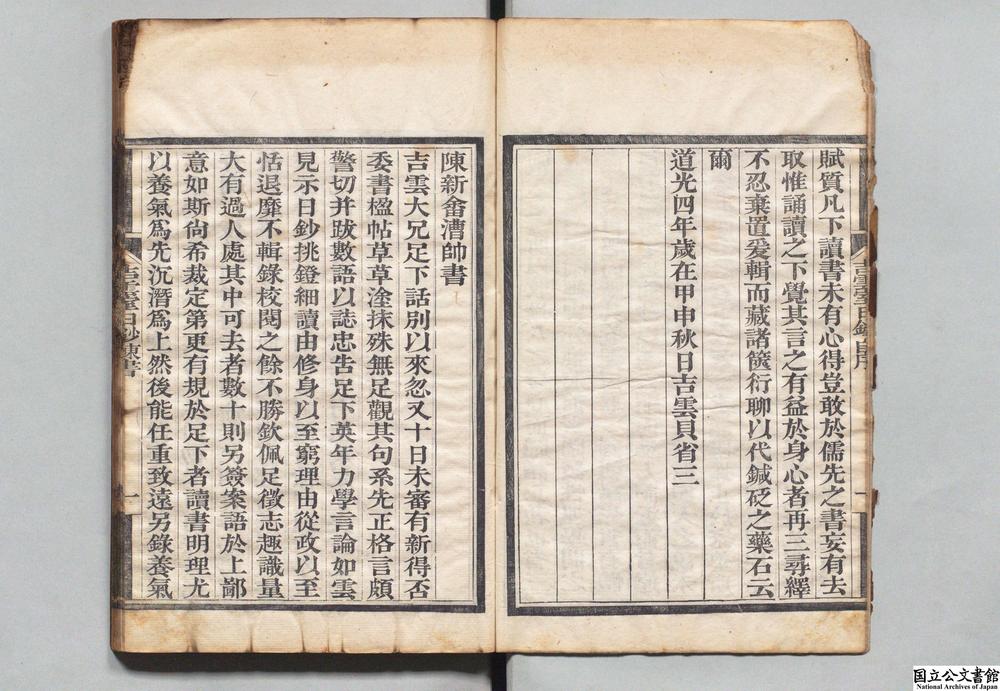 賦質凡下讀書未有心得豈敢於儒先之書妄有去
取惟誦讀之下覺其言之有益於身心者再三尋繹
不忍棄置爰輯而藏諸篋衍聊以代鍼砭之藥石云
爾
道光四年歲在甲申秋日吉雲貝省三
陳新畬漕帥書
吉雲大兄足下話別以來忽又十日未審有新得否
委書楹帖草草塗抹殊無足觀其句系先正格言頗
警切并跋數語以誌忠告足下英年力學言論如雲
見示日鈔挑鐙細讀由修身以至窮理由從政以至
恬退靡不輯錄校閱之餘不勝欽佩足徵志趣識量
大有過人處其中可去者數十則另簽案語於上鄙
意如斯尙希裁定第更有規於足下者讀書明理尤
以養氣爲先沉潛爲上然後能任重致遠另錄養氣
日鈔陳書
一
国立公文書館
National Archives of Japan